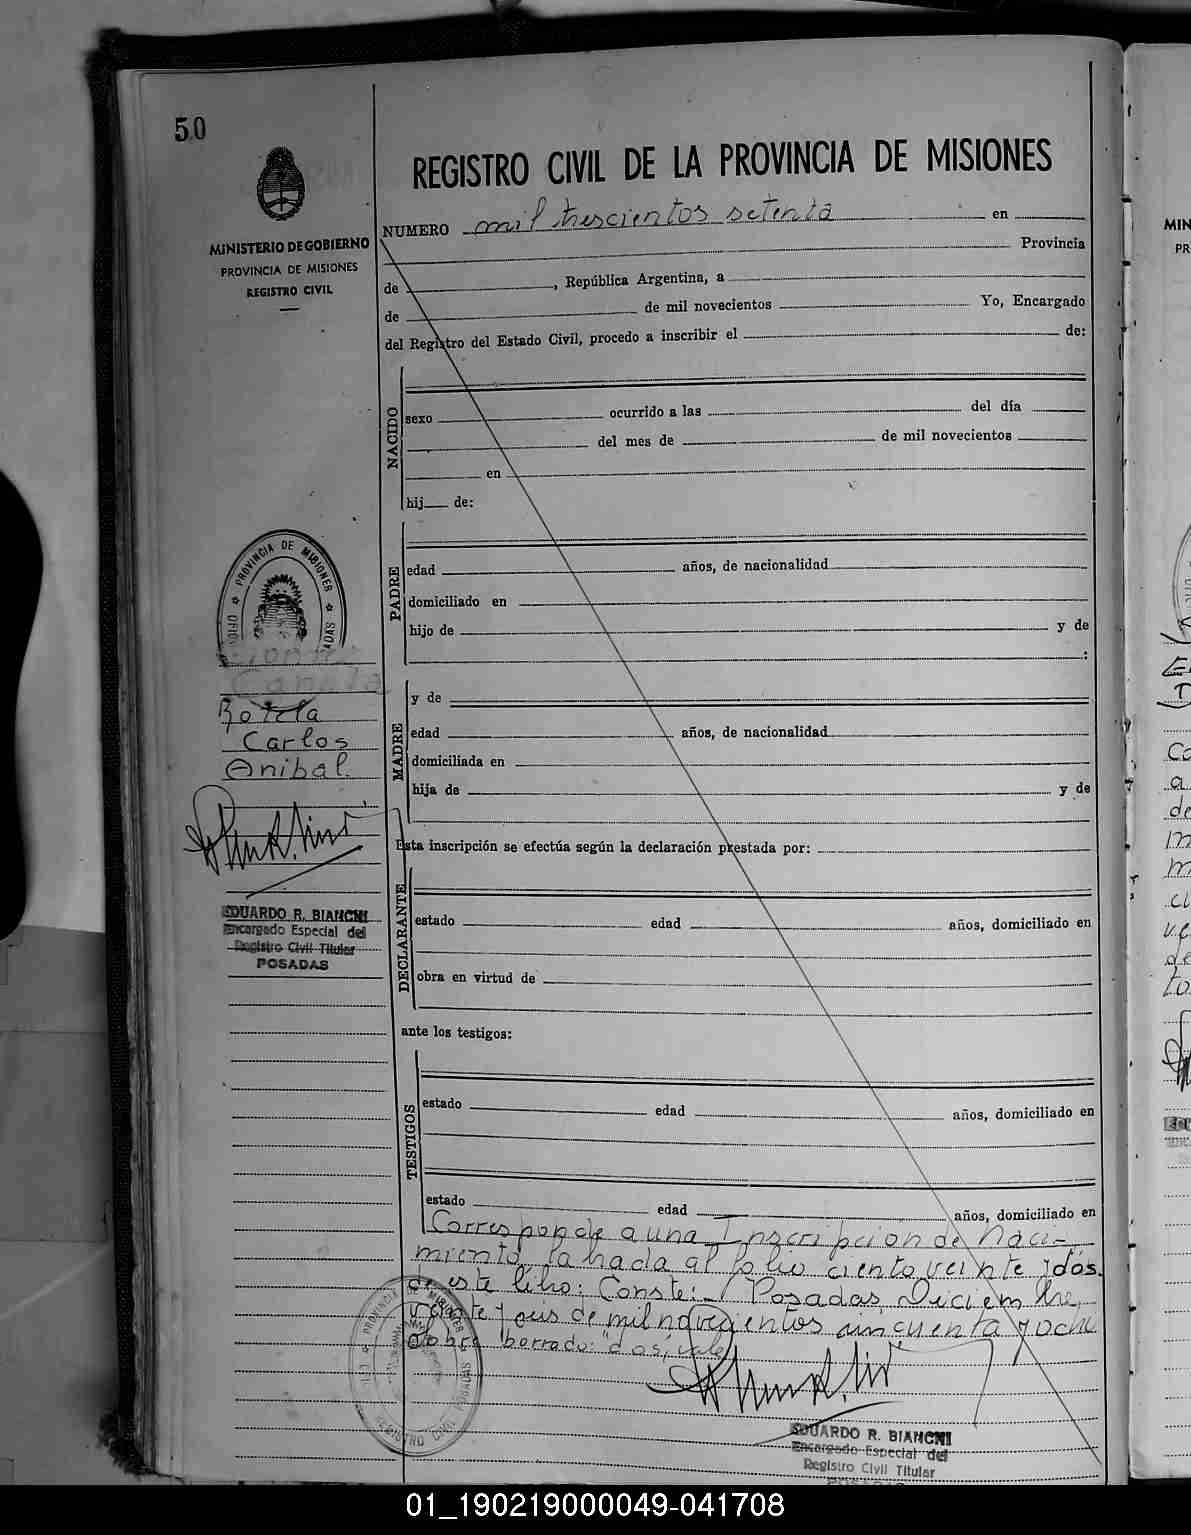 50
REGISTRO CIVIL DE LA PROVINCIA DE MISIONES
MINISTERIO DE GOBIERNO
PROVINCIA DE MISIONES
REGISTRO CIVIL
NUMERO mil trescientos setenta en
Provincia
de , República Argentina, a
de de mil novecientos Yo, Encargado
del Registro del Estado Civil, procedo a inscribir el de:
NACIDO
sexo ocurrido a las del día
del mes de de mil novecientos
en
hij de:
PROVINCIA DE MISIONES
PADRE
edad años, de nacionalidad
domiciliado en
hijo de y de
:
Botela
Carlos
Anibal.
MADRE
y de
edad años, de nacionalidad
domiciliada en
hija de y de
Esta inscripción se efectúa según la declaración prestada por:
EDUARDO R. BIANCHI
Encargado Especial del
Registro Civil Titular
POSADAS
DECLARANTE
estado edad años, domiciliado en
obra en virtud de
ante los testigos:
TESTIGOS
estado edad años, domiciliado en
estado edad años, domiciliado en
Corresponde a una Inscripción de Naci-
miento labrada al folio ciento veinte y dos
de este libro: Conste:- Posadas, Diciembre
veinte y seis de mil novecientos cincuenta y ocho
Sobre borrado: "dos, vale
EDUARDO R. BIANCHI
Encargado Especial del
Registro Civil Titular
01_190219000049-041708